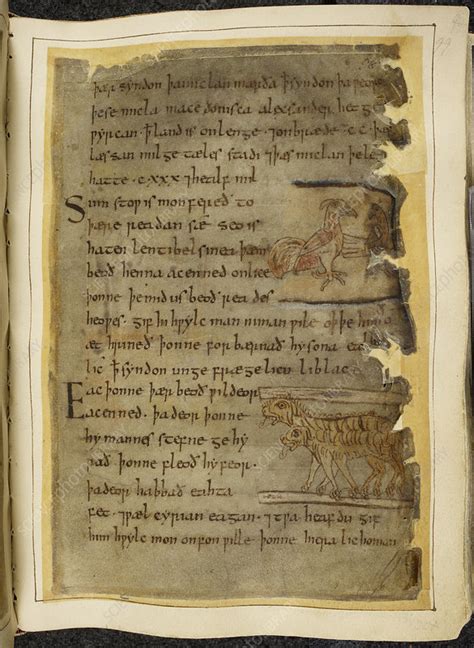 99
þær syndon þa miclan mærða þ syndon þa ƿeorc
þe se micla macedonisca alexsander het ge
ƿyrcan. þ land is on lenge ⁊ on bræde .cc. þæs
læssan milgetæles stadi ⁊ þæs miclan þe
hatte .cxxx ⁊ healf mil
Sum stoƿ is mon fereð to
þære readan sæ seo is
haten lentibelsinea þær
beoð henna acenned onlice
þonne þe mid us beoð reades
heoƿes. gif hi hƿylc man niman ƿile oþþe
æt hrineð þonne forbærnað hy sona
lic þ syndon ungefrægelicu liblac
Eac þonne þær beoð ƿildeor
acenned. þa deor þonne
hy mannes stefne gehy
rað þonne fleoð hy feor.
þa deor habbað eahta
fet. ⁊ ƿælcyrian eagan. ⁊ tƿa heafdu gif
him hƿylc mon onfon ƿille þonne hiera lichoman